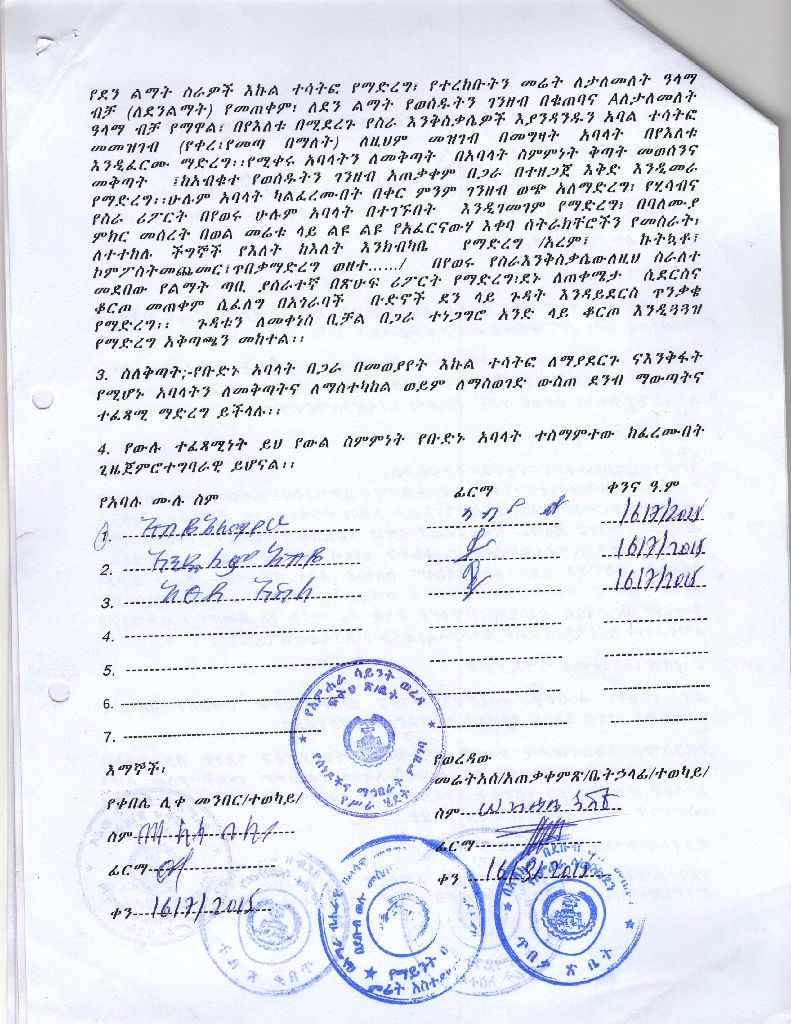 የደን ልማት ስራዎች እኩል ተሳትፎ የማድረግ፣ የተረከቡትን መሬት ለታለመለት ዓላማ
ብቻ (ለደንልማት) የመጠቀም፣ ለደን ልማት የወሰዱትን ገንዘብ በቁጠባና Aለታለመለት
ዓላማ ብቻ የማዋል፣ በየእለቱ በሚደረጉ የስራ እንቅስቃሴዎች እያንዳንዱን አባል ተሳትፎ
መመዝገብ (የቀረ፣የመጣ በማለት) ለዚህም መዝገብ በመግዛት አባላት በየእለቱ
እንዲፈርሙ ማድረግ፡፡የሚቀሩ አባላትን ለመቅጣት በአባላት ስምምነት ቅጣት መወሰንና
መቅጣት ፤ከአብቁተ የወሰዱትን ገንዘብ አጠቃቀም በጋራ በተዘጋጀ እቅድ እንዲመራ
የማድረግ፡፡ሁሉም አባላት ካልፈረሙበት በቀር ምንም ገንዘብ ወጭ አለማድረግ፣ የሂሳብና
የስራ ሪፖርት በየወሩ ሁሉም አባላት በተገኙበት እንዲገመገም የማድረግ፣ በባለሙያ
ምክር መሰረት በወል መሬቱ ላይ ልዩ ልዩ የአፈርናውሃ እቀባ ስትራክቸሮችን የመስራት፣
ለተተከሉ ችግኞች የእለት ከእለት እንክብካቤ የማድረግ /አረም፣ ኩትኳቶ፣
ኮምፖስትመጨመር፣ጥበቃማድረግ ወዘተ....../ በየወሩ የስራእንቅስቃሴውለዚህ ስራለተ
መደበው የልማት ጣቢ ያሰራተኛ በጽሁፍ ሪፖርት የማድረግ፣ደኑ ለጠቀሜታ ሲደርስና
ቆርጦ መጠቀም ሲፈለግ በአጎራባች ቡድኖች ደን ላይ ጉዳት እንዳይደርስ ጥንቃቄ
የማድረግ፡፡ ጉዳቱን ለመቀነስ ቢቻል በጋራ ተነጋግሮ አንድ ላይ ቆርጦ እንዲጓጓዝ
የማድረግ አቅጣጫን መከተል፡፡
3. ስለቅጣት;-የቡድኑ አባላት በጋራ በመወያየት እኩል ተሳትፎ ለማያደርጉ ናእንቅፋት
የሚሆኑ አባላትን ለመቅጣትና ለማስተካከል ወይም ለማስወገድ ውስጠ ደንብ ማውጣትና
ተፈጻሚ ማድረግ ይችላሉ፡፡
4. የውሉ ተፈጻሚነት ይህ የውል ስምምነት የቡድኑ አባላት ተስማምተው ከፈረሙበት
ጊዜጀምሮተግባራዊ ይሆናል፡፡
የአባሉ ሙሉ ስም ፊርማ ቀንና ዓ.ም
1. 16/7/2015
2. 16/7/2015
3. 16/7/2015
4.
5.
6.
7.
የአምሐራ ሳይንት ወረዳ
ፍትህ ጽ/ቤት
የሰነዶችና ማኅበራት ምዝገባ
የሥራ ሂደት
እማኞች፣
የቀበሌ ሊቀ መንበር/ተወካይ/
ስም
ፊርማ
ቀን 16/7/2015
የወረዳው
መሬትአስ/አጠቃቀምጽ/ቤትኃላፊ/ተወካይ/
ስም
ፊርማ
ቀን 16/8/2015
የማይንት ወ
መሬት አስተዳ
ጥበቃ ጽ ቤት